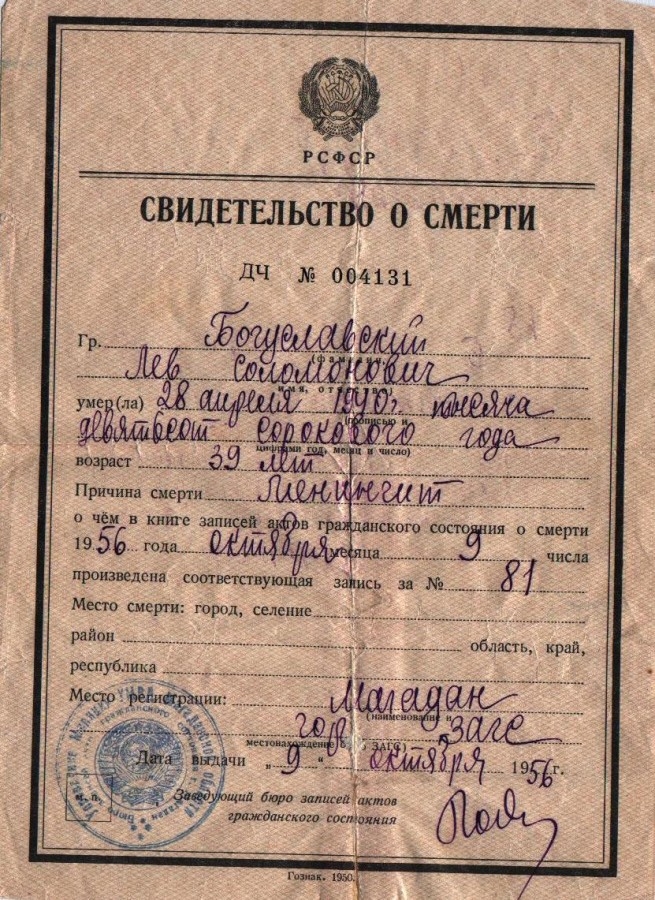 РСФСР
РСФСР
СВИДЕТЕЛЬСТВО О СМЕРТИ
ДЧ № 004131
Гр. Богуславский
(фамилия)
Лев Соломонович
имя, отчество
умер(ла) 28 апреля 1940г. тысяча
(прописью и
девятьсот сорокового года
цифрами год, месяц и число)
возраст 39 лет
Причина смерти Менингит
о чём в книге записей актов гражданского состояния о смерти
1956 года октября месяца 9 числа
произведена соответствующая запись за № 81
Место смерти: город, селение
район область, край,
республика
Место регистрации: Магадан
(наименование и
гор ЗАГС
местонахождение ЗАГС)
Дата выдачи „9“ октября 1956г.
Заведующий бюро записей актов
гражданского состояния
Гознак. 1950.